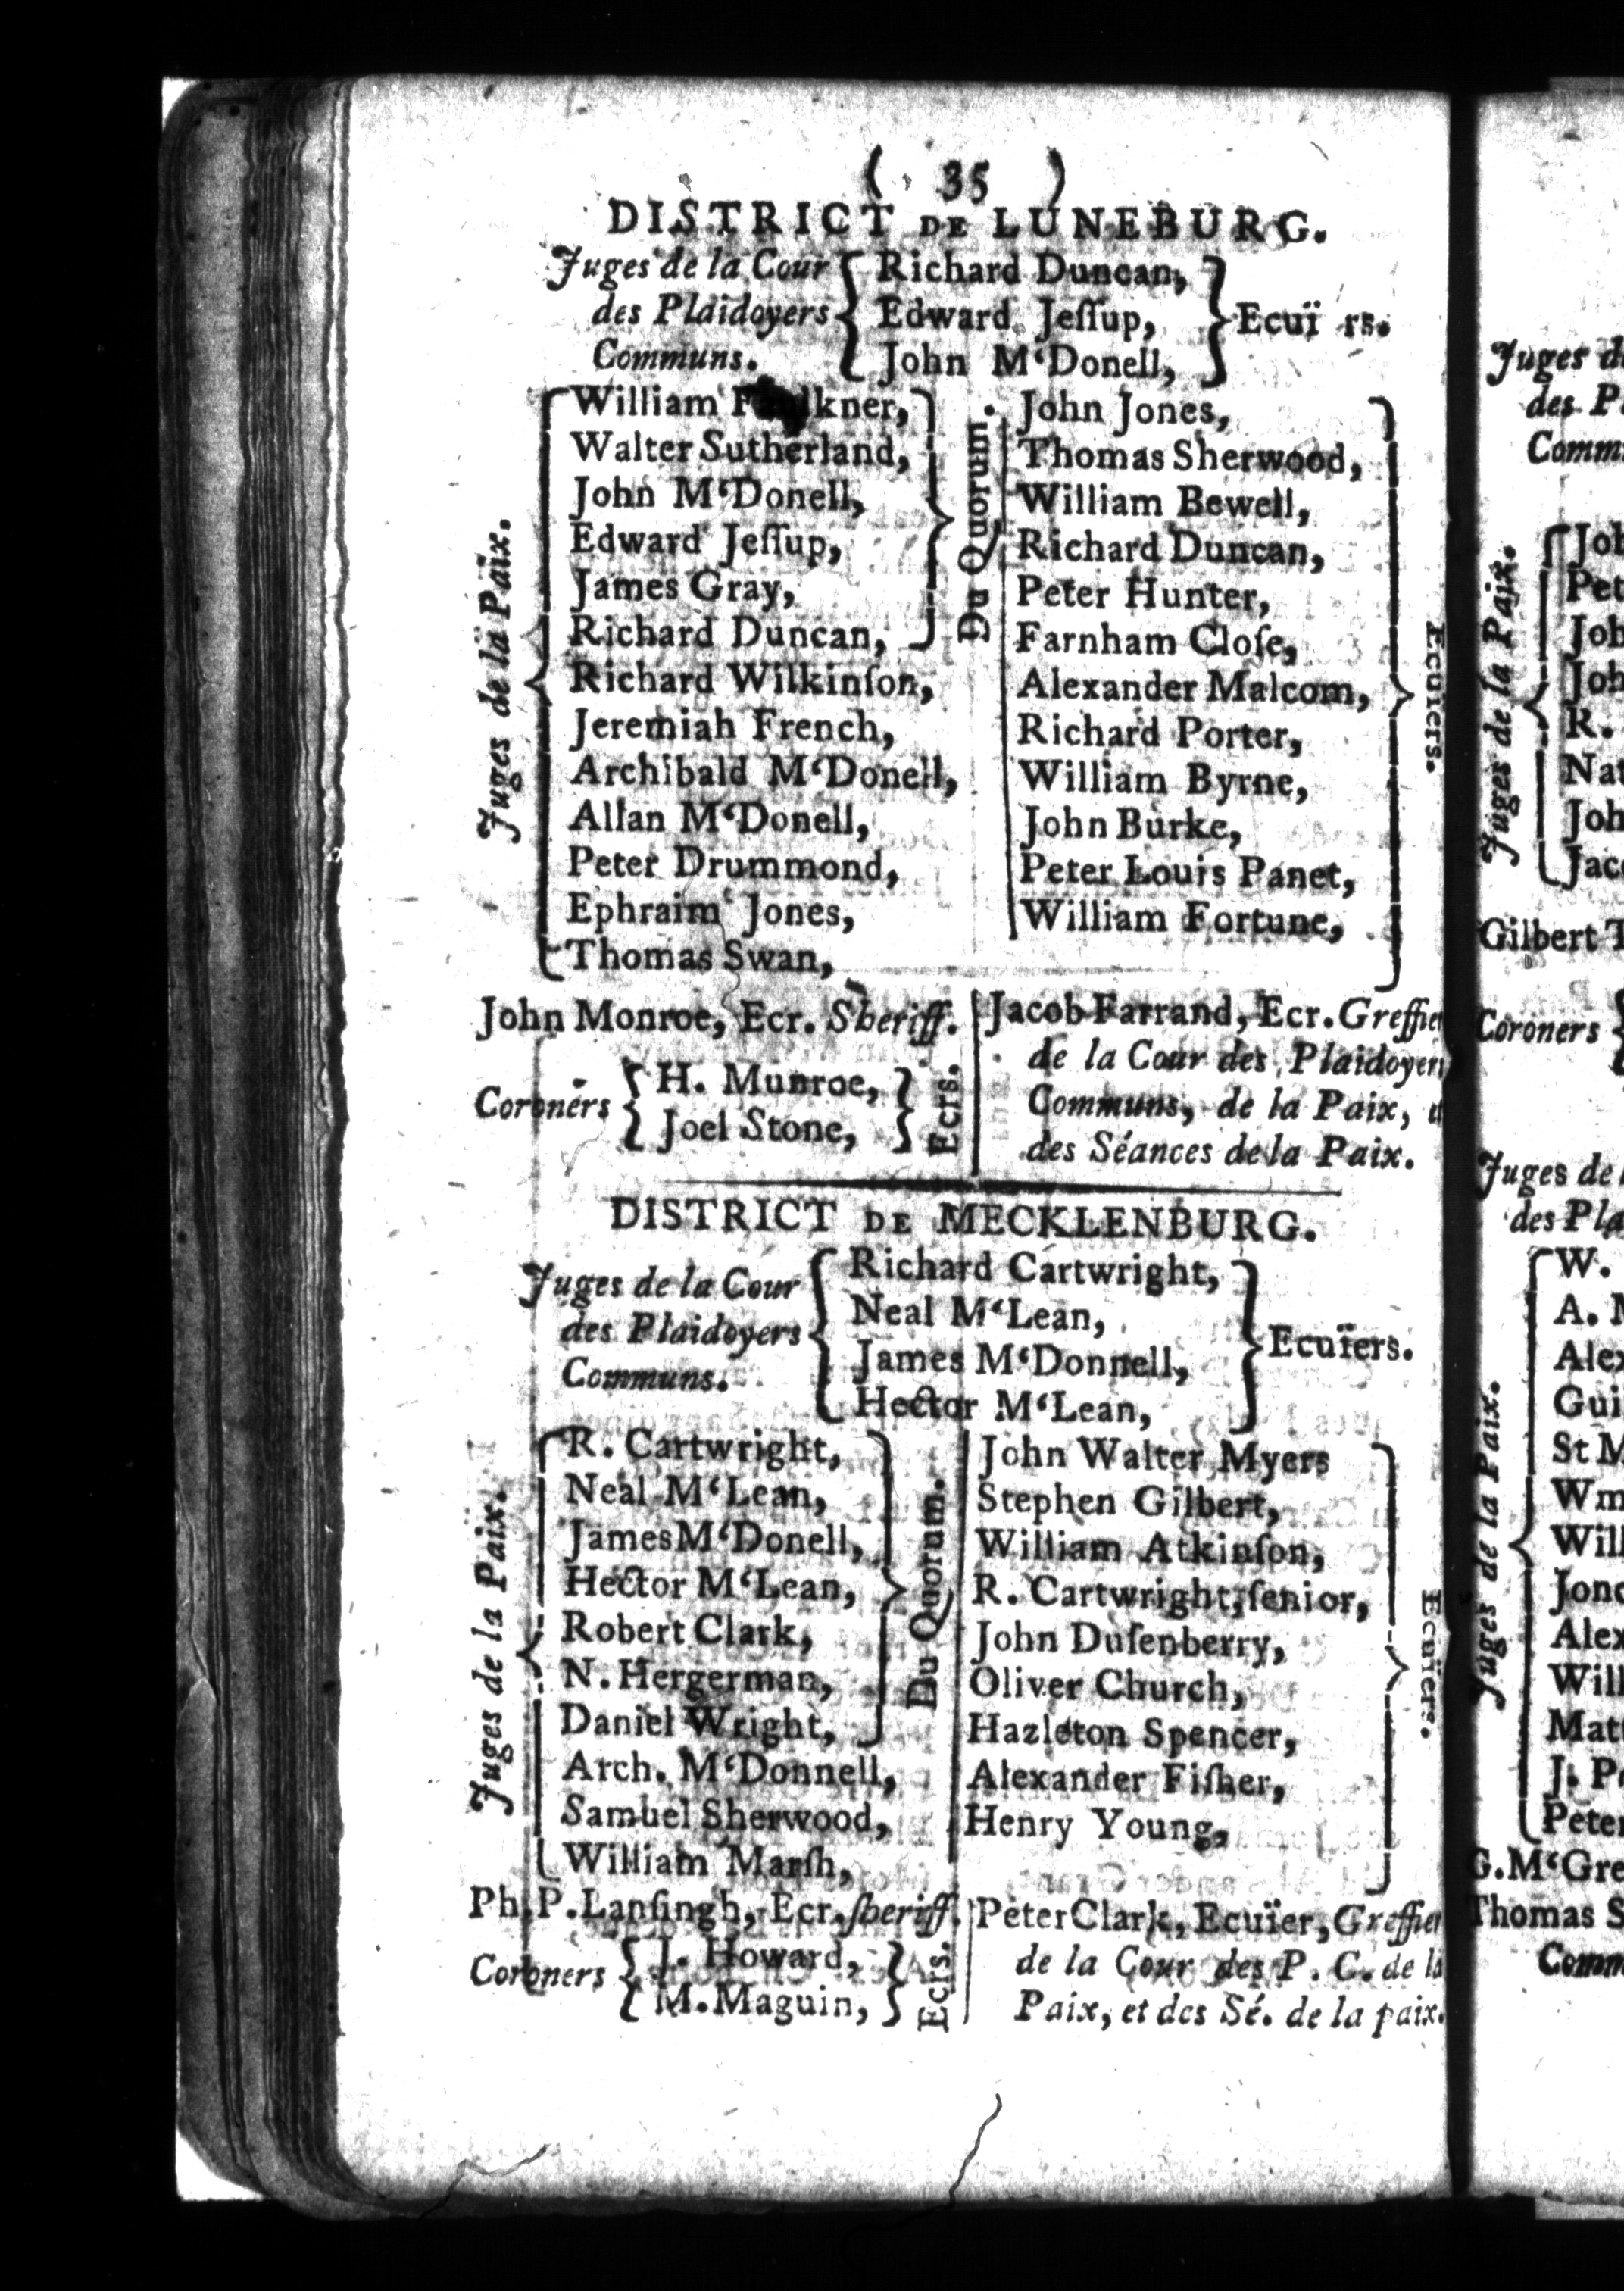 ( 35 )
DISTRICT DE LUNEBURG.
Juges de la Cour
des Plaidoyers
Communs.
Richard Duncan,
Edward Jeſſup,
John M‘Donell,
Ecuï rs.
Juges de la Paix.
William
Walter Sutherland,
John M‘Donell,
Edward Jeſſup,
James Gray,
Richard Duncan,
Du Quorum.
Richard Wilkinſon,
Jeremiah French,
Archibald M‘Donell,
Allan M‘Donell,
Peter Drummond,
Ephraim Jones,
Thomas Swan,
John Jones,
Thomas Sherwood,
William Bewell,
Richard Duncan,
Peter Hunter,
Farnham Cloſe,
Alexander Malcom,
Richard Porter,
William Byrne,
John Burke,
Peter Louis Panet,
William Fortune,
Ecuïers.
John Monroe, Ecr. Sheriff.
Coroners
H. Munroe,
Joel Stone,
Ecrs.
Jacob Farrand, Ecr. Greffier
de la Cour des Plaidoyers
Communs, de la Paix,
des Séances de la Paix.
DISTRICT DE MECKLENBURG.
Juges de la Cour
des Plaidoyers
Communs.
Richard Cartwright,
Neal M‘Lean,
James M‘Donnell,
Hector M‘Lean,
Ecuïers.
Juges de la Paix.
R. Cartwright,
Neal M‘Lean,
James M‘Donell,
Hector M‘Lean,
Robert Clark,
N. Hergerman,
Daniel Wright,
Du Quorum.
Arch. M‘Donnell,
Samuel Sherwood,
William Marſh,
John Walter Myers
Stephen Gilbert,
William Atkinſon,
R. Cartwright, ſenior,
John Duſenberry,
Oliver Church,
Hazleton Spencer,
Alexander Fiſher,
Henry Young,
Ecuïers.
Ph. P. Lanſingh, Ecr. ſheriff.
Coroners
J. Howard,
M. Maguin,
Ecrs.
Peter Clark, Ecuïer, Greffier
de la Cour des P. C. de la
Paix, et des Sé. de la paix.
Juges
des P
Comm
Juges de la Paix.
Joh
Pet
Joh
Joh
R.
Nat
Joh
Jac
Gilbert T
Coroners
Juges de
des Pla
Juges de la Paix.
W.
A. M
Alex
Gui
St M
Wm
Will
Jone
Alex
Will
Mat
J. P
Peter
G. M‘Gre
Thomas S
Comm